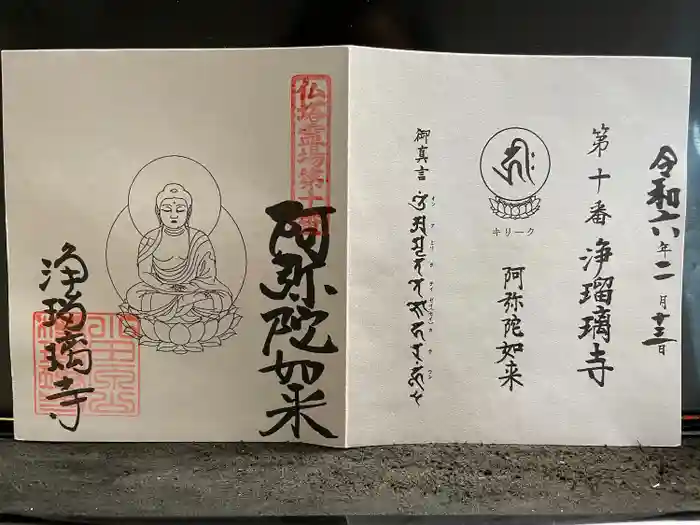 令和六年二月十三日
第十番 浄瑠璃寺
キリーク
阿弥陀如来
御真言
仏塔霊場第十番
阿弥陀如来
浄瑠璃寺